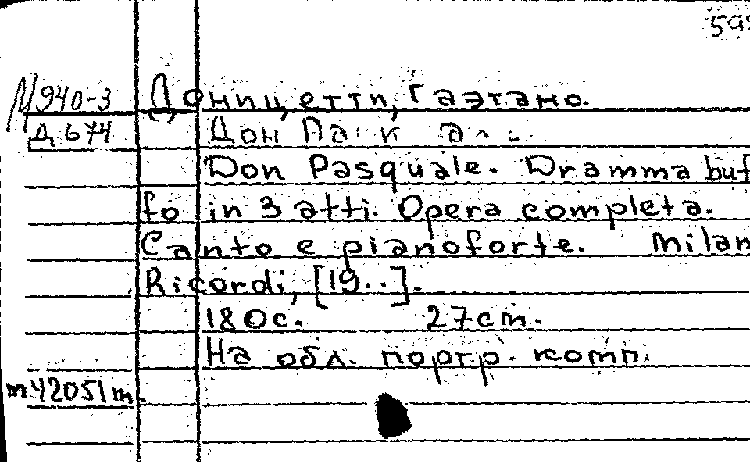 М940-3 Доницетти, Гаэтано.
Д674 Дон Паск
Don Pasquale. Dramma buf
fo in 3 atti. Opera completa.
Canto e pianoforte. Milan
Ricordi, [19..].
180с. 27cm.
На обл. портр. комп.
m42051m